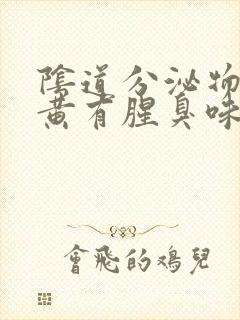 陰道分泌物
黃有腥臭味
會飛的鴉兒